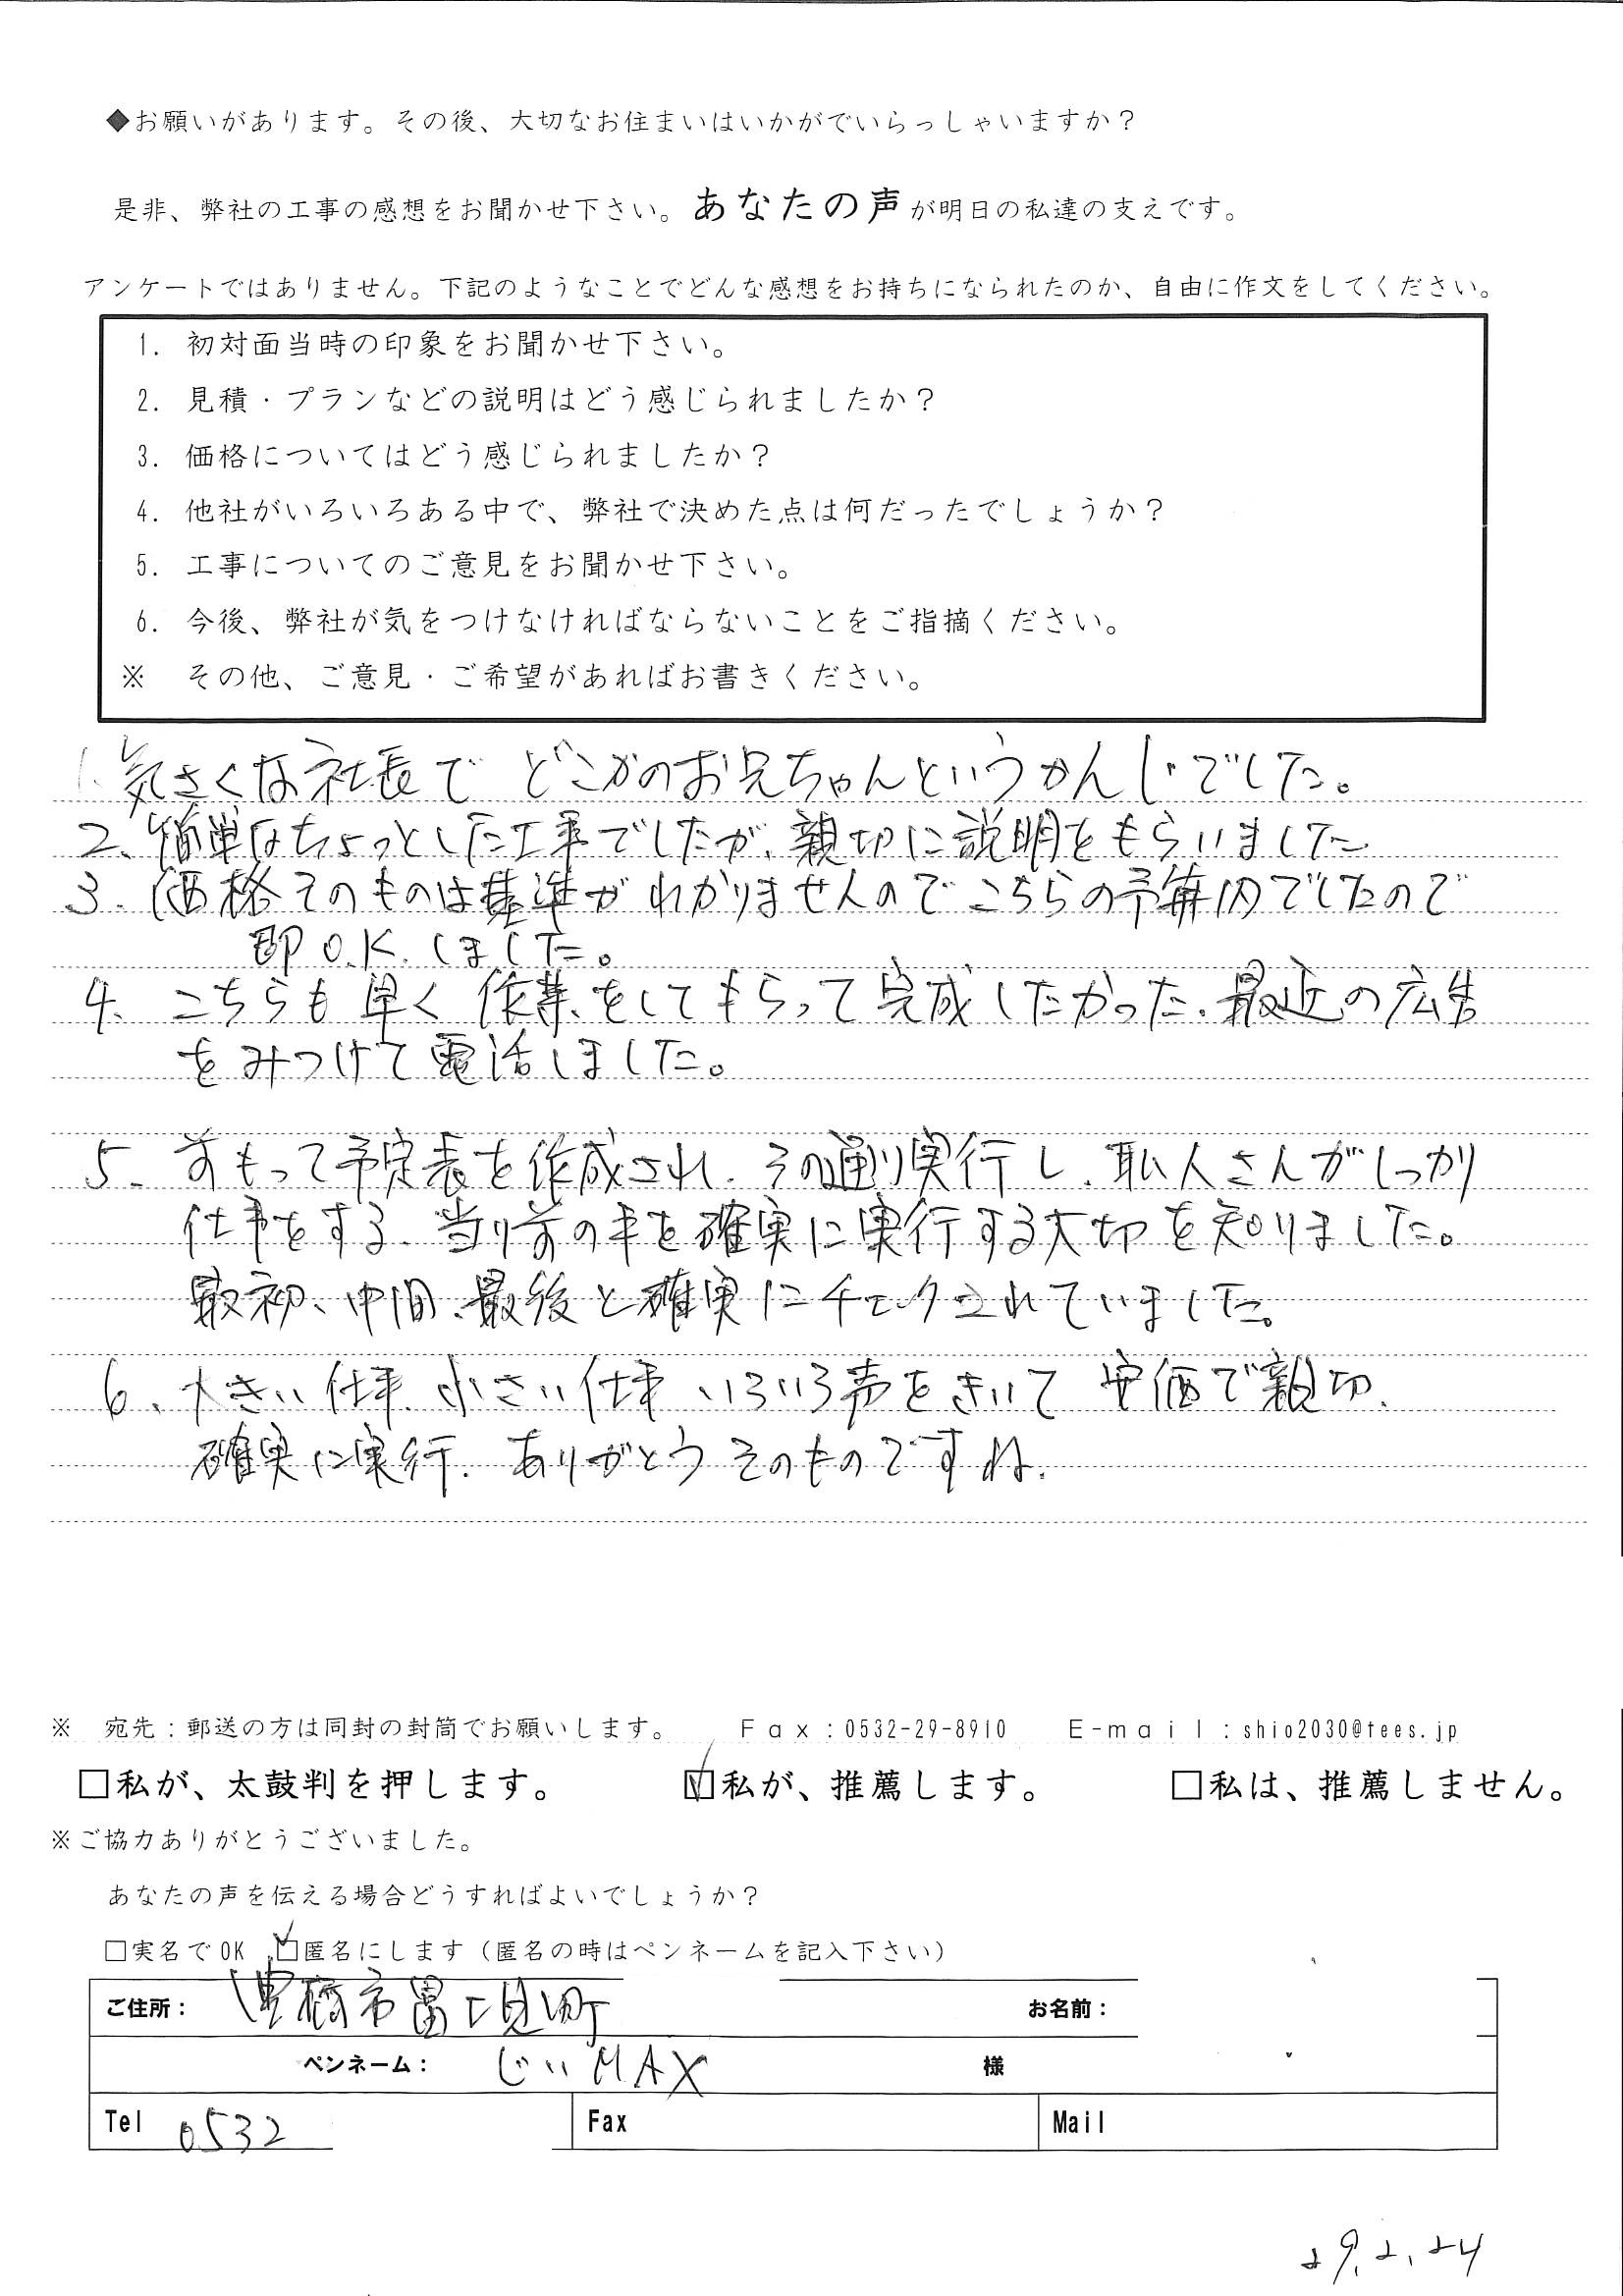 ◆お願いがあります。その後、大切なお住まいはいかがでいらっしゃいますか？
是非、弊社の工事の感想をお聞かせ下さい。あなたの声が明日の私達の支えです。
アンケートではありません。下記のようなことでどんな感想をお持ちになられたのか、自由に作文をしてください。
1. 初対面当時の印象をお聞かせ下さい。
2. 見積・プランなどの説明はどう感じられましたか？
3. 価格についてはどう感じられましたか？
4. 他社がいろいろある中で、弊社で決めた点は何だったでしょうか？
5. 工事についてのご意見をお聞かせ下さい。
6. 今後、弊社が気をつけなければならないことをご指摘ください。
※ その他、ご意見・ご希望があればお書きください。
1. 気さくな社長で どこかのお兄ちゃんというかんじでした。
2、簡単なちょっとした工事でしたが、親切に説明をもらいました
3. 価格そのものは基準がわかりませんのでこちらの予算内でしたので
即O.K.しました。
4. こちらも早く作業をしてもらって完成したかった、最近の広告
をみつけて電話しました。
5. 前もって予定表を作成され、その通り実行し、職人さんがしっかり
仕事をする、当り前の事を確実に実行する大切を知りました。
最初、中間、最後と確実にチェックされていました。
6、大きい仕事、小さい仕事いろいろ声をきいて 安価で親切、
確実に実行、ありがとうそのものですね.
※ 宛先：郵送の方は同封の封筒でお願いします。 Fax：0532-29-8910 E-mail：shio2030@tees.jp
□私が、太鼓判を押します。 ☑私が、推薦します。 □私は、推薦しません。
※ご協力ありがとうございました。
あなたの声を伝える場合どうすればよいでしょうか？
□実名でOK ☑匿名にします（匿名の時はペンネームを記入下さい）
ご住所： 豊橋市富士見町 お名前：
ペンネーム： じいMAX 様
Tel 0532 Fax Mail
29.2.24